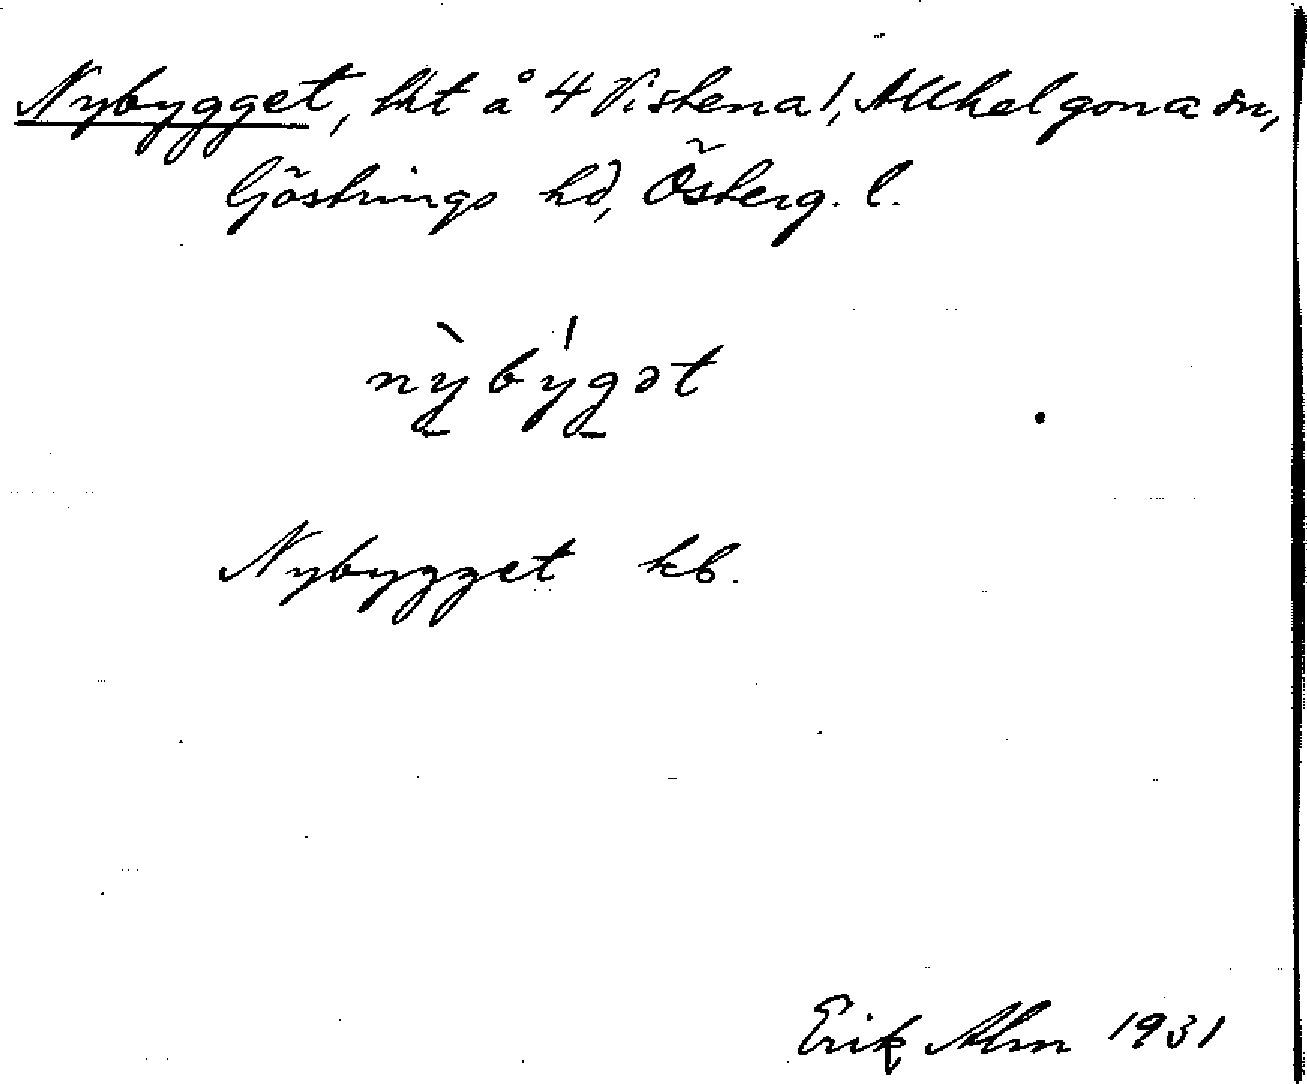 Nybygget, lht å 4 Vistena 1, Allhelgona sn,
Göstrings hd, Österg. l.
nỳ̠býg̠ət
Nybygget kb.
Erik Alm 1931